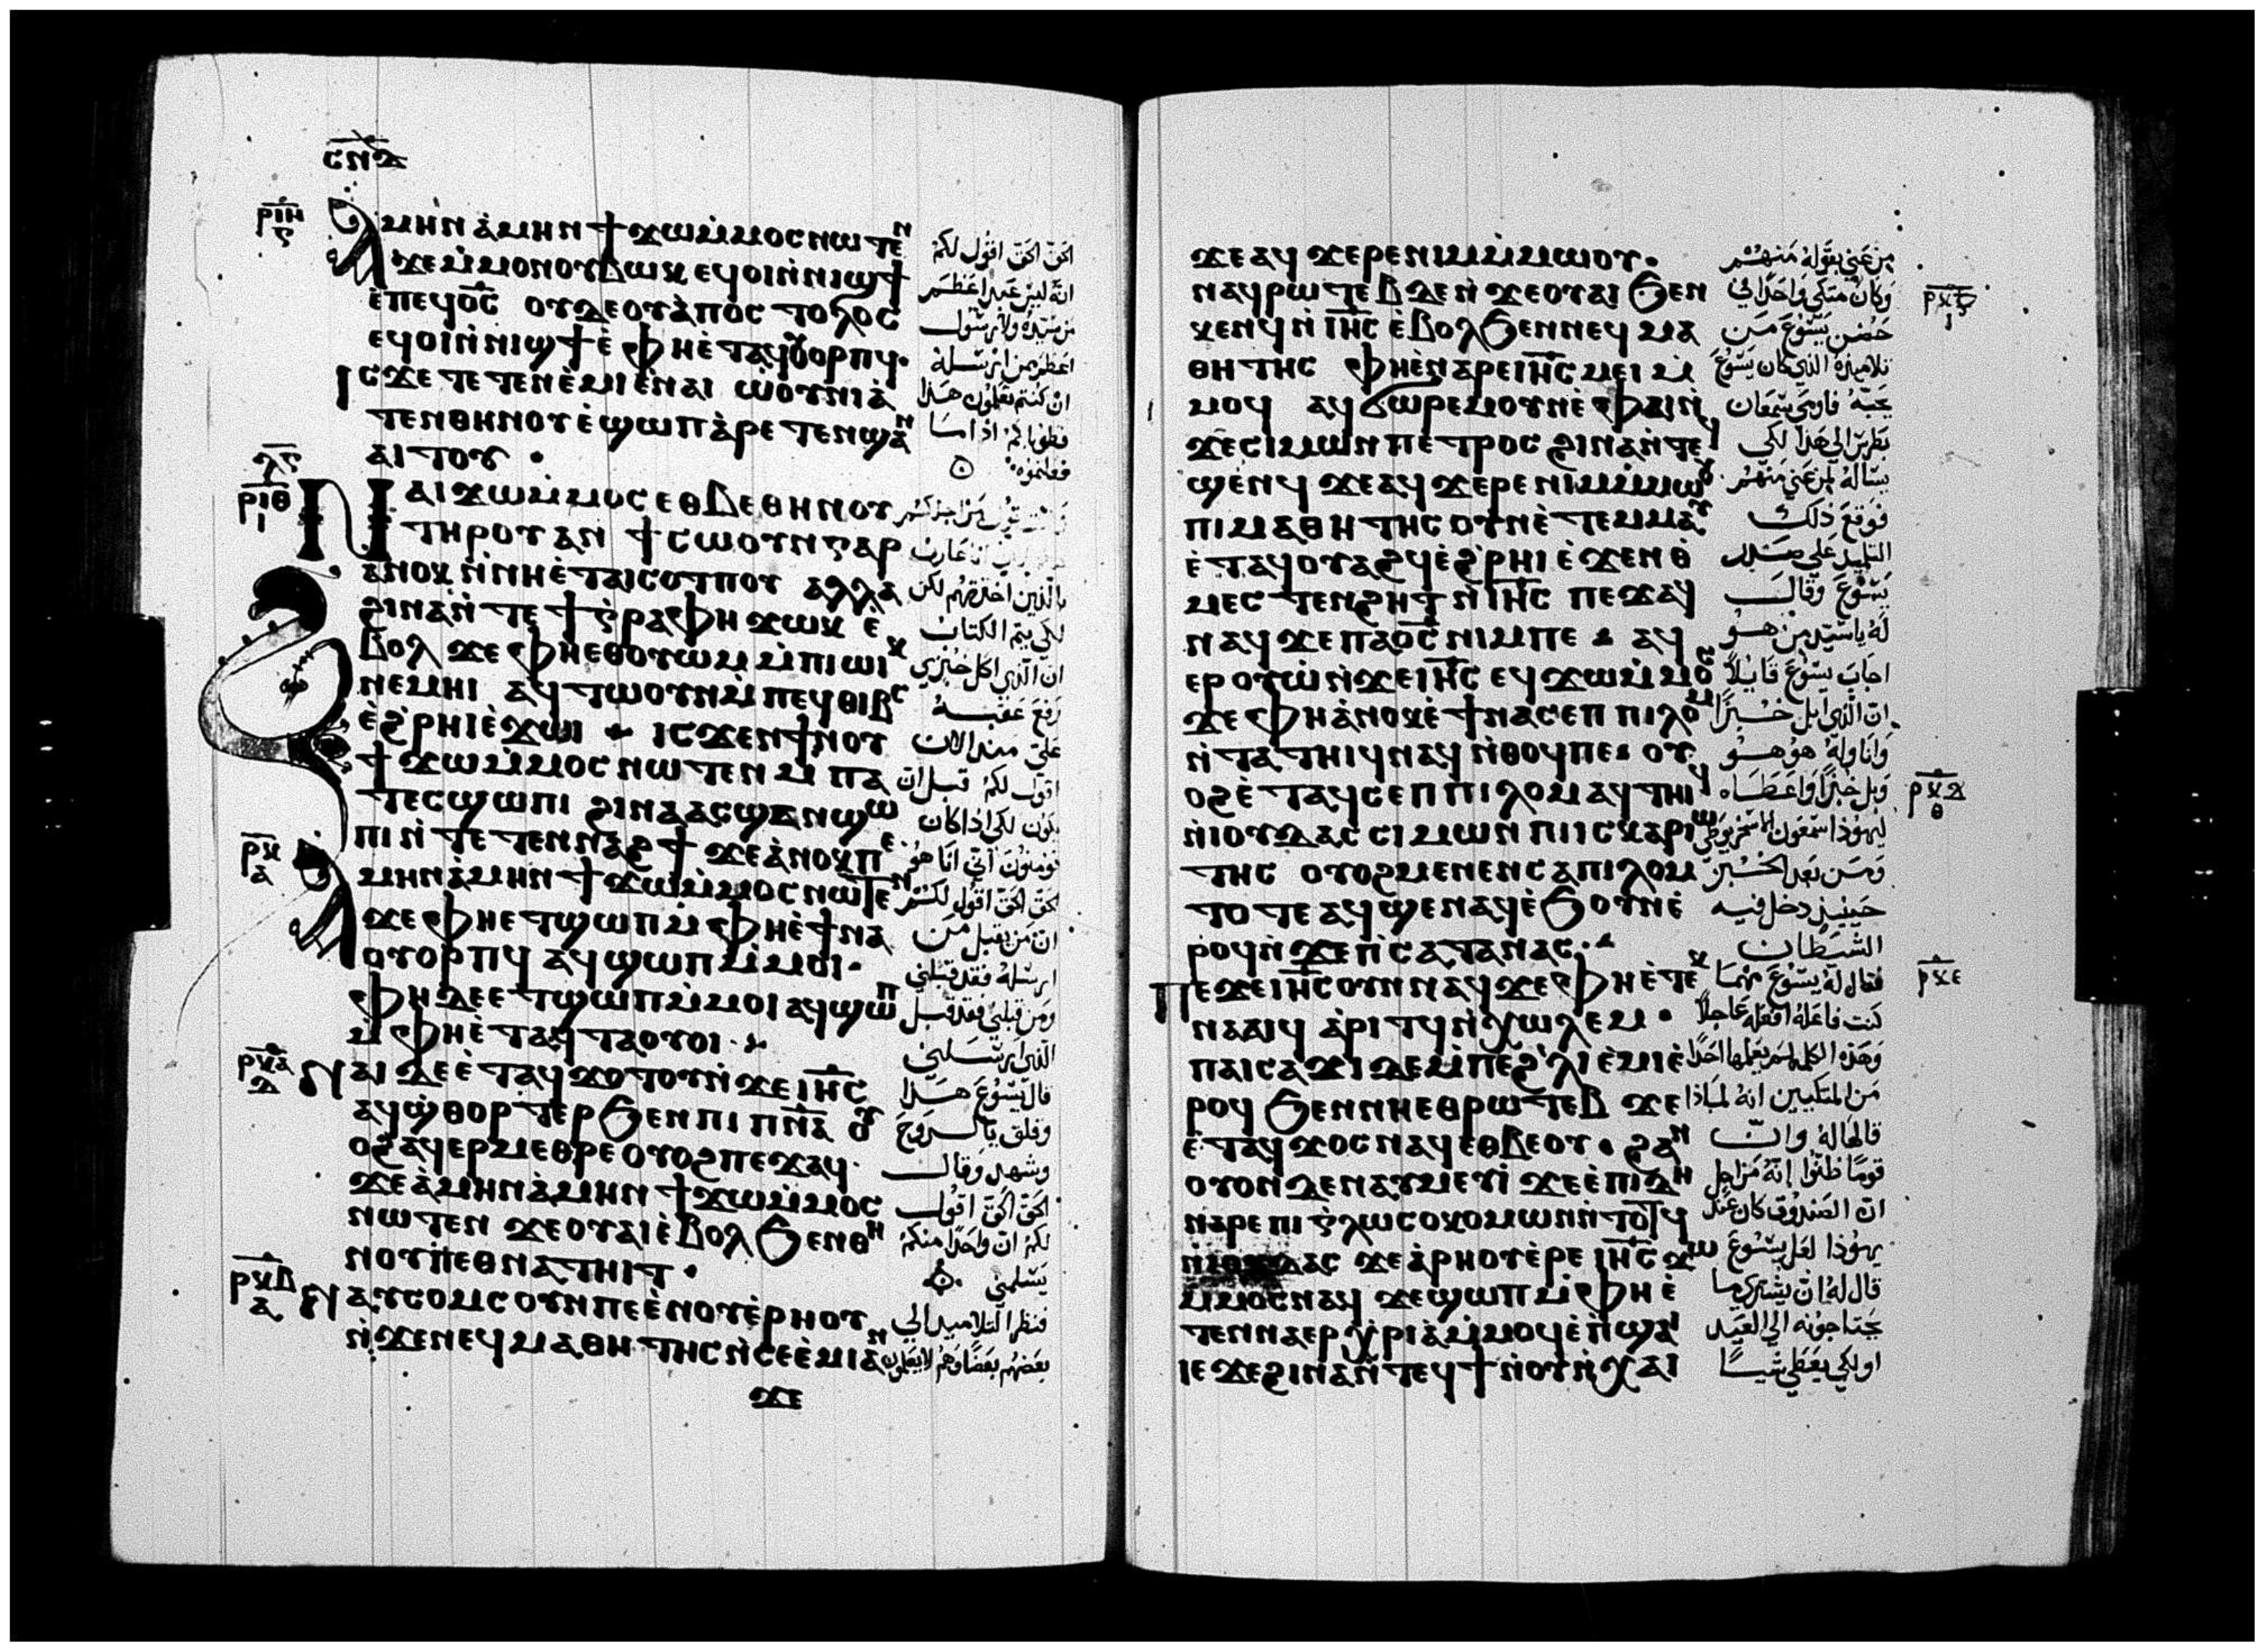 ⲥⲛⲇ
ⲣⲓⲏ
ⲋ
Ⲁⲙⲏⲛ ⲁ̀ⲙⲏⲛ ϯϫⲱ ⲙ̀ⲙⲟⲥ ⲛⲱⲧⲉⲛ
ϫⲉ ⲙ̀ⲙⲟⲛ ⲟⲩⲃⲱⲕ ⲉϥⲟⲓ ⲛ̀ⲛⲓϣϯ
ⲉ̀ⲡⲉϥⲟ̅ⲥ̅ ⲟⲩⲇⲉ ⲟⲩⲁ̀ⲡⲟⲥⲧⲟⲗⲟⲥ
ⲉϥⲟⲓ ⲛ̀ⲛⲓϣϯ ⲉ̀ ⲫⲏⲉ̀ⲧⲁϥⲟⲩⲟⲣⲡϥ.
Ⲓⲥϫⲉ ⲧⲉⲧⲉⲛⲉ̀ⲙⲓ ⲉ̀ⲛⲁⲓ ⲱ̀ⲟⲩⲛⲓⲁ̀
ⲧⲉⲛⲑⲏⲛⲟⲩ ⲉ̀ϣⲱⲡ ⲁ̀ⲣⲉⲧⲉⲛϣⲁⲛ
ⲁⲓⲧⲟⲩ ·
ⲗⲋ
ⲣⲓⲑ
ⲓ
Ⲛⲁⲓϫⲱ ⲙ̀ⲙⲟⲥ ⲉⲑⲃⲉⲑⲏⲛⲟⲩ
ⲧⲏⲣⲟⲩ ⲁⲛ ϯⲥⲱⲟⲩⲛ ⲅⲁⲣ
ⲁⲛⲟⲕ ⲛ̀ⲛⲏⲉ̀ⲧⲁⲓⲥⲟⲧⲡⲟⲩ ⲁⲗⲗⲁ
ϩⲓⲛⲁ ⲛ̀ⲧⲉ ϯⲅ̀ⲣⲁⲫⲏ ϫⲱⲕ ⲉ̀
ⲃⲟⲗ ϫⲉ ⲫⲏⲉⲑⲟⲩⲱⲙ ⲙ̀ⲡⲓⲱⲓⲕ
ⲛⲉⲙⲏⲓ ⲁϥⲧⲱⲟⲩⲛ ⲙ̀ⲡⲉϥⲑⲓⲃⲥ
ⲉ̀ϩ̀ⲣⲏⲓ ⲉ̀ϫⲱⲓ · ⲓⲥϫⲉⲛ ϯⲛⲟⲩ
ϯϫⲱ ⲙ̀ⲙⲟⲥ ⲛⲱⲧⲉⲛ ⲙⲡⲁ
ⲧⲉⲥϣⲱⲡⲓ ϩⲓⲛⲁ ⲁⲥϣⲁⲛϣⲱ
ⲡⲓ ⲛ̀ⲧⲉⲧⲉⲛⲛⲁϩϯ ϫⲉ ⲁ̀ⲛⲟⲕ ⲡⲉ.
ⲣⲕ
ⲁ
Ⲁⲙⲏⲛ ⲁ̀ⲙⲏⲛ ϯϫⲱ ⲙ̀ⲙⲟⲥ ⲛⲱⲧⲉⲛ
ϫⲉ ⲫⲏⲉⲧϣⲱⲡ ⲙ̀ⲫⲏⲉ̀ϯⲛⲁ
ⲟⲩⲟⲣⲡϥ ⲁϥϣⲱⲡ ⲙ̀ⲙⲟⲓ·
ⲫⲏ ⲇⲉ ⲉⲧϣⲱⲡ ⲙ̀ⲙⲟⲓ ⲁϥϣⲱⲡ
ⲙ̀ⲫⲏⲉ̀ⲧⲁϥⲧⲁⲟⲩⲟⲓ ·
ⲣⲕⲁ
ⲇ
Ⲛⲁⲓ ⲇⲉ ⲉ̀ⲧⲁϥϫⲟⲧⲟⲩ ⲛ̀ϫⲉ ⲓⲏ̅ⲥ̅
ⲁϥϣ̀ⲑⲟⲣⲧⲉⲣ ϧⲉⲛ ⲡⲓⲡⲛ̅ⲁ̅ ⲟⲩ
ⲟϩ ⲁϥⲉⲣⲙⲉⲑⲣⲉ ⲟⲩⲟϩ ⲡⲉϫⲁϥ·
ϫⲉ ⲁ̀ⲙⲏⲛ ⲁ̀ⲙⲏⲛ ϯϫⲱ ⲙ̀ⲙⲟⲥ
ⲛⲱⲧⲉⲛ ϫⲉ ⲟⲩⲁⲓ ⲉ̀ⲃⲟⲗ ϧⲉⲛ ⲑⲏ
ⲛⲟⲩ ⲡⲉⲑⲛⲁⲧⲏⲓⲧ ·
ⲣⲕⲃ
ⲁ
Ⲛⲁⲩⲥⲟⲙⲥ ⲟⲩⲛ ⲡⲉ ⲉ̀ⲛⲟⲩⲉ̀ⲣⲏⲟⲩ
ⲛ̀ϫⲉ ⲛⲉϥⲙⲁⲑⲏⲧⲏⲥ ⲛ̀ⲥⲉⲉ̀ⲙⲓ ⲁⲛ
ϫⲉ
الحق الحق اقول لكم
انه ليس عبدا اعظم
من سيده ولا رسول
اعظم من ارسله
ان كنتم تعلمون هذا
فطوباكم اذا ما
فعلتموه
بالذين اخترتهم لكن
لكي يتم الكتاب
ان الذي اكل خبزي
رفع عقبه
علي منذ الان
اقول لكم قبل ان
يكون لكي اذا كان
تومنون اني انا هو
الحق الحق اقول لكم
ان من يقبل من
ارسله فقد قبلني
ومن قبلني فقد قبل
الذي ارسلني
قال يسوع هذا
وقلق بالروح
وشهد وقال
الحق الحق اقول
لكم ان واحدا منكم
يسلمني
فنظر التلاميذ الي
بعضهم بعضا وهم لا يعلمون
ϫⲉ ⲁϥϫⲉⲣⲉ ⲛⲓⲙ ⲙ̀ⲙⲱⲟⲩ·
ⲛⲁϥⲣⲱⲧⲉⲃ ⲇⲉ ⲛ̀ϫⲉ ⲟⲩⲁⲓ ϧⲉⲛ
ⲕⲉⲛϥ ⲛ̀ⲓⲏ̅ⲥ̅ ⲉ̀ⲃⲟⲗ ϧⲉⲛ ⲛⲉϥⲙⲁ
ⲑⲏⲧⲏⲥ ⲫⲏⲉ̀ⲛⲁⲣⲉ ⲓⲏ̅ⲥ̅ ⲙⲉⲓ ⲙ̀
ⲙⲟϥ ⲁϥϭⲱⲣⲉⲙ ⲟⲩⲛ ⲉ̀ⲫⲁⲓ ⲛ̀
ϫⲉ ⲥⲓⲙⲱⲛ ⲡⲉⲧⲣⲟⲥ ϩⲓⲛⲁ ⲛ̀ⲧⲉϥ
ϣⲉⲛϥ ϫⲉ ⲁϥϫⲉⲣⲉ ⲛⲓⲙ ⲙ̀ⲙⲱⲟⲩ
ⲡⲓⲙⲁⲑⲏⲧⲏⲥ ⲟⲩⲛ ⲉ̀ⲧⲉⲙⲙⲁⲩ
ⲉ̀ⲧⲁϥⲟⲩⲁϩϥ ⲉ̀ϩ̀ⲣⲏⲓ ⲉ̀ϫⲉⲛ ⲑ̀
ⲙⲉⲥⲧⲉⲛϩⲏⲧ ⲛ̀ⲓⲏ̅ⲥ̅ ⲡⲉϫⲁϥ
ⲛⲁϥ ϫⲉ ⲡⲁⲟ̅ⲥ̅ ⲛⲓⲙ ⲡⲉ · ⲁϥ
ⲉⲣⲟⲩⲱ̀ ⲛ̀ϫⲉ ⲓⲏ̅ⲥ̅ ⲉϥϫⲱ ⲙ̀ⲙⲟⲥ
ϫⲉ ⲫⲏ ⲁ̀ⲛⲟⲕ ⲉ̀ϯⲛⲁⲥⲉⲡ ⲡⲓⲗⲟⲙ
ⲛ̀ⲧⲁⲧⲏⲓϥ ⲛⲁϥ ⲛ̀ⲑⲟϥ ⲡⲉ· ⲟⲩ
ⲟϩ ⲉ̀ⲧⲁϥⲥⲉⲡ ⲡⲓⲗⲟⲙ ⲁϥⲧⲏⲓϥ
ⲛ̀ⲓⲟⲩⲇⲁⲥ ⲥⲓⲙⲱⲛ ⲡⲓⲓⲥⲕⲁⲣⲓⲱ
ⲧⲏⲥ ⲟⲩⲟϩ ⲙⲉⲛⲉⲛⲥⲁ ⲡⲓⲗⲟⲙ
ⲧⲟⲧⲉ ⲁϥϣⲉⲛⲁϥ ⲉ̀ϧⲟⲩⲛ ⲉ̀
ⲣⲟϥ ⲛ̀ϫⲉ ⲡ̀ⲥⲁⲧⲁⲛⲁⲥ·
Ⲡⲉϫⲉ ⲓⲏ̅ⲥ̅ ⲟⲩⲛ ⲛⲁϥ ϫⲉ ⲫⲏⲉ̀ⲧⲉⲕ
ⲛⲁⲁⲓϥ ⲁ̀ⲣⲓⲧϥ ⲛ̀ⲭⲱⲗⲉⲙ ·
ⲡⲁⲓⲥⲁϫⲓ ⲇⲉ ⲙ̀ⲡⲉ ϩ̀ⲗⲓ ⲉ̀ⲙⲓ ⲉ̀
ⲣⲟϥ ϧⲉⲛ ⲛⲏⲉⲑⲣⲱⲧⲉⲃ ϫⲉ
ⲉ̀ⲧⲁϥϫⲟⲥ ⲛⲁϥ ⲉⲑⲃⲉⲟⲩ · ϩⲁⲛ
ⲟⲩⲟⲛ ⲇⲉ ⲛⲁⲩⲙⲉⲩⲓ̀ ϫⲉ ⲉ̀ⲡⲓⲇⲏ
ⲛⲁⲣⲉ ⲡⲓⲅ̀ⲗⲱⲥⲟⲕⲟⲙⲱⲛ ⲛ̀ⲧⲟⲧϥ
ⲛ̀ⲓⲟⲩⲇⲁⲥ ϫⲉ ⲁ̀ⲣⲏⲟⲩ ⲉ̀ⲣⲉ ⲓⲏ̅ⲥ̅ ϫⲱ
ⲙ̀ⲙⲟⲥ ⲛⲁϥ ϫⲉ ϣⲱⲡ ⲙ̀ⲫⲏⲉ̀
ⲧⲉⲛⲛⲁⲉⲣⲭ̀ⲣⲓⲁ̀ ⲙ̀ⲙⲟϥ ⲉ̀ⲡ̀ϣⲁⲓ
ⲓⲉ ϫⲉ ϩⲓⲛⲁ ⲛ̀ⲧⲉϥϯ ⲛ̀ⲟⲩⲛ̀ⲭⲁⲓ
من عني بقوله منهم
وكان متكي واحدا في
حضن يسوع من
تلاميذه الذي كان يسوع
يحبه فاومي سمعان
بطرس الي هذا لكي
يساله لمن عني منهم
فوقع ذلك
التلميذ علي صدر
يسوع وقال
له يا سيد من هو
اجاب يسوع قايلا
ان الذي ابل خبزا
واناوله هو هو
وبل خبزا واعطاه
ليهوذا سمعون الاسخريوطي
ومن بعد الخبز
حينيذ دخل فيه
الشيطان
فقال له يسوع مهما
كنت فاعله افعله عاجلا
وهذه الكلمه لم يعلمها احدا
من المتكيين انه لماذا
قالها له وان
قوما ظنوا انه من اجل
ان الصندوق كان عند
يهوذا لعل يسوع
قال له ان يشتري ما
يحتاجونه الي العيد
او لكي يعطي شيا
ⲣⲕⲇ
ⲑ
ⲣⲕⲉ